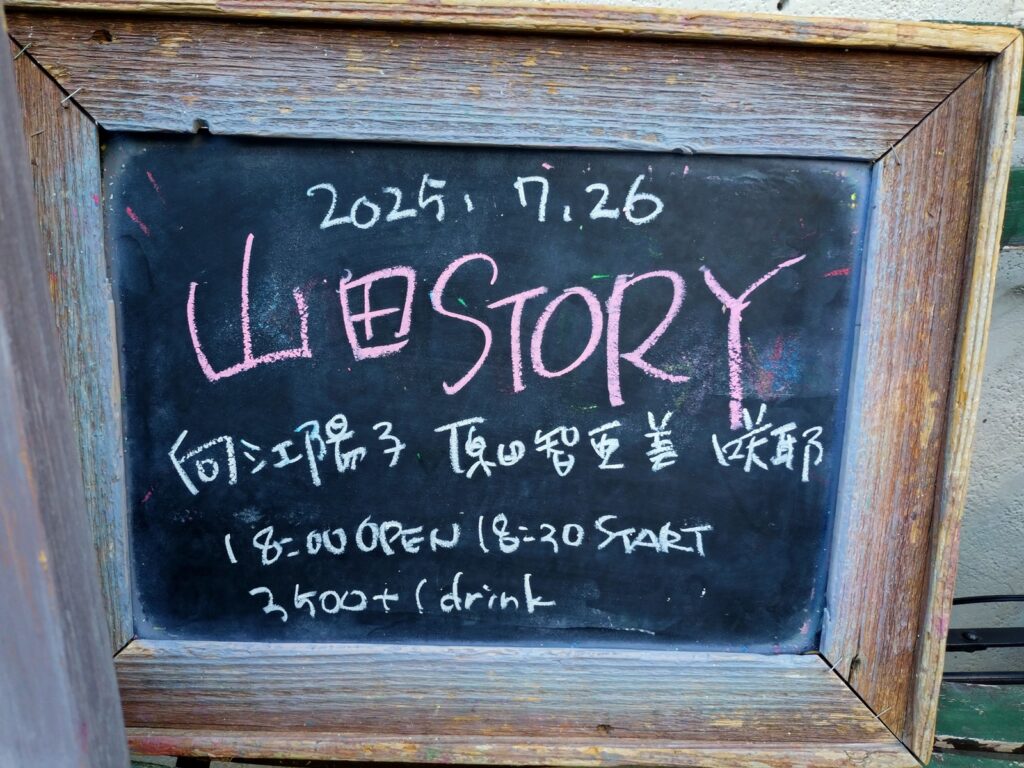 2025. 7. 26
山田STORY
向江陽子 原田智亜美 咲耶
18:00 OPEN 18:30 START
3500+1drink